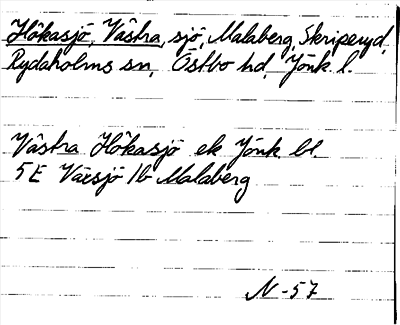 Hökasjö, Västra, sjö, Malaberg, Skriperyd,
Rydaholms sn, Östbo hd, Jönk l.
Västra Hökasjö ek Jönk bl.
5E Värsjö 1b Malaberg
N-57